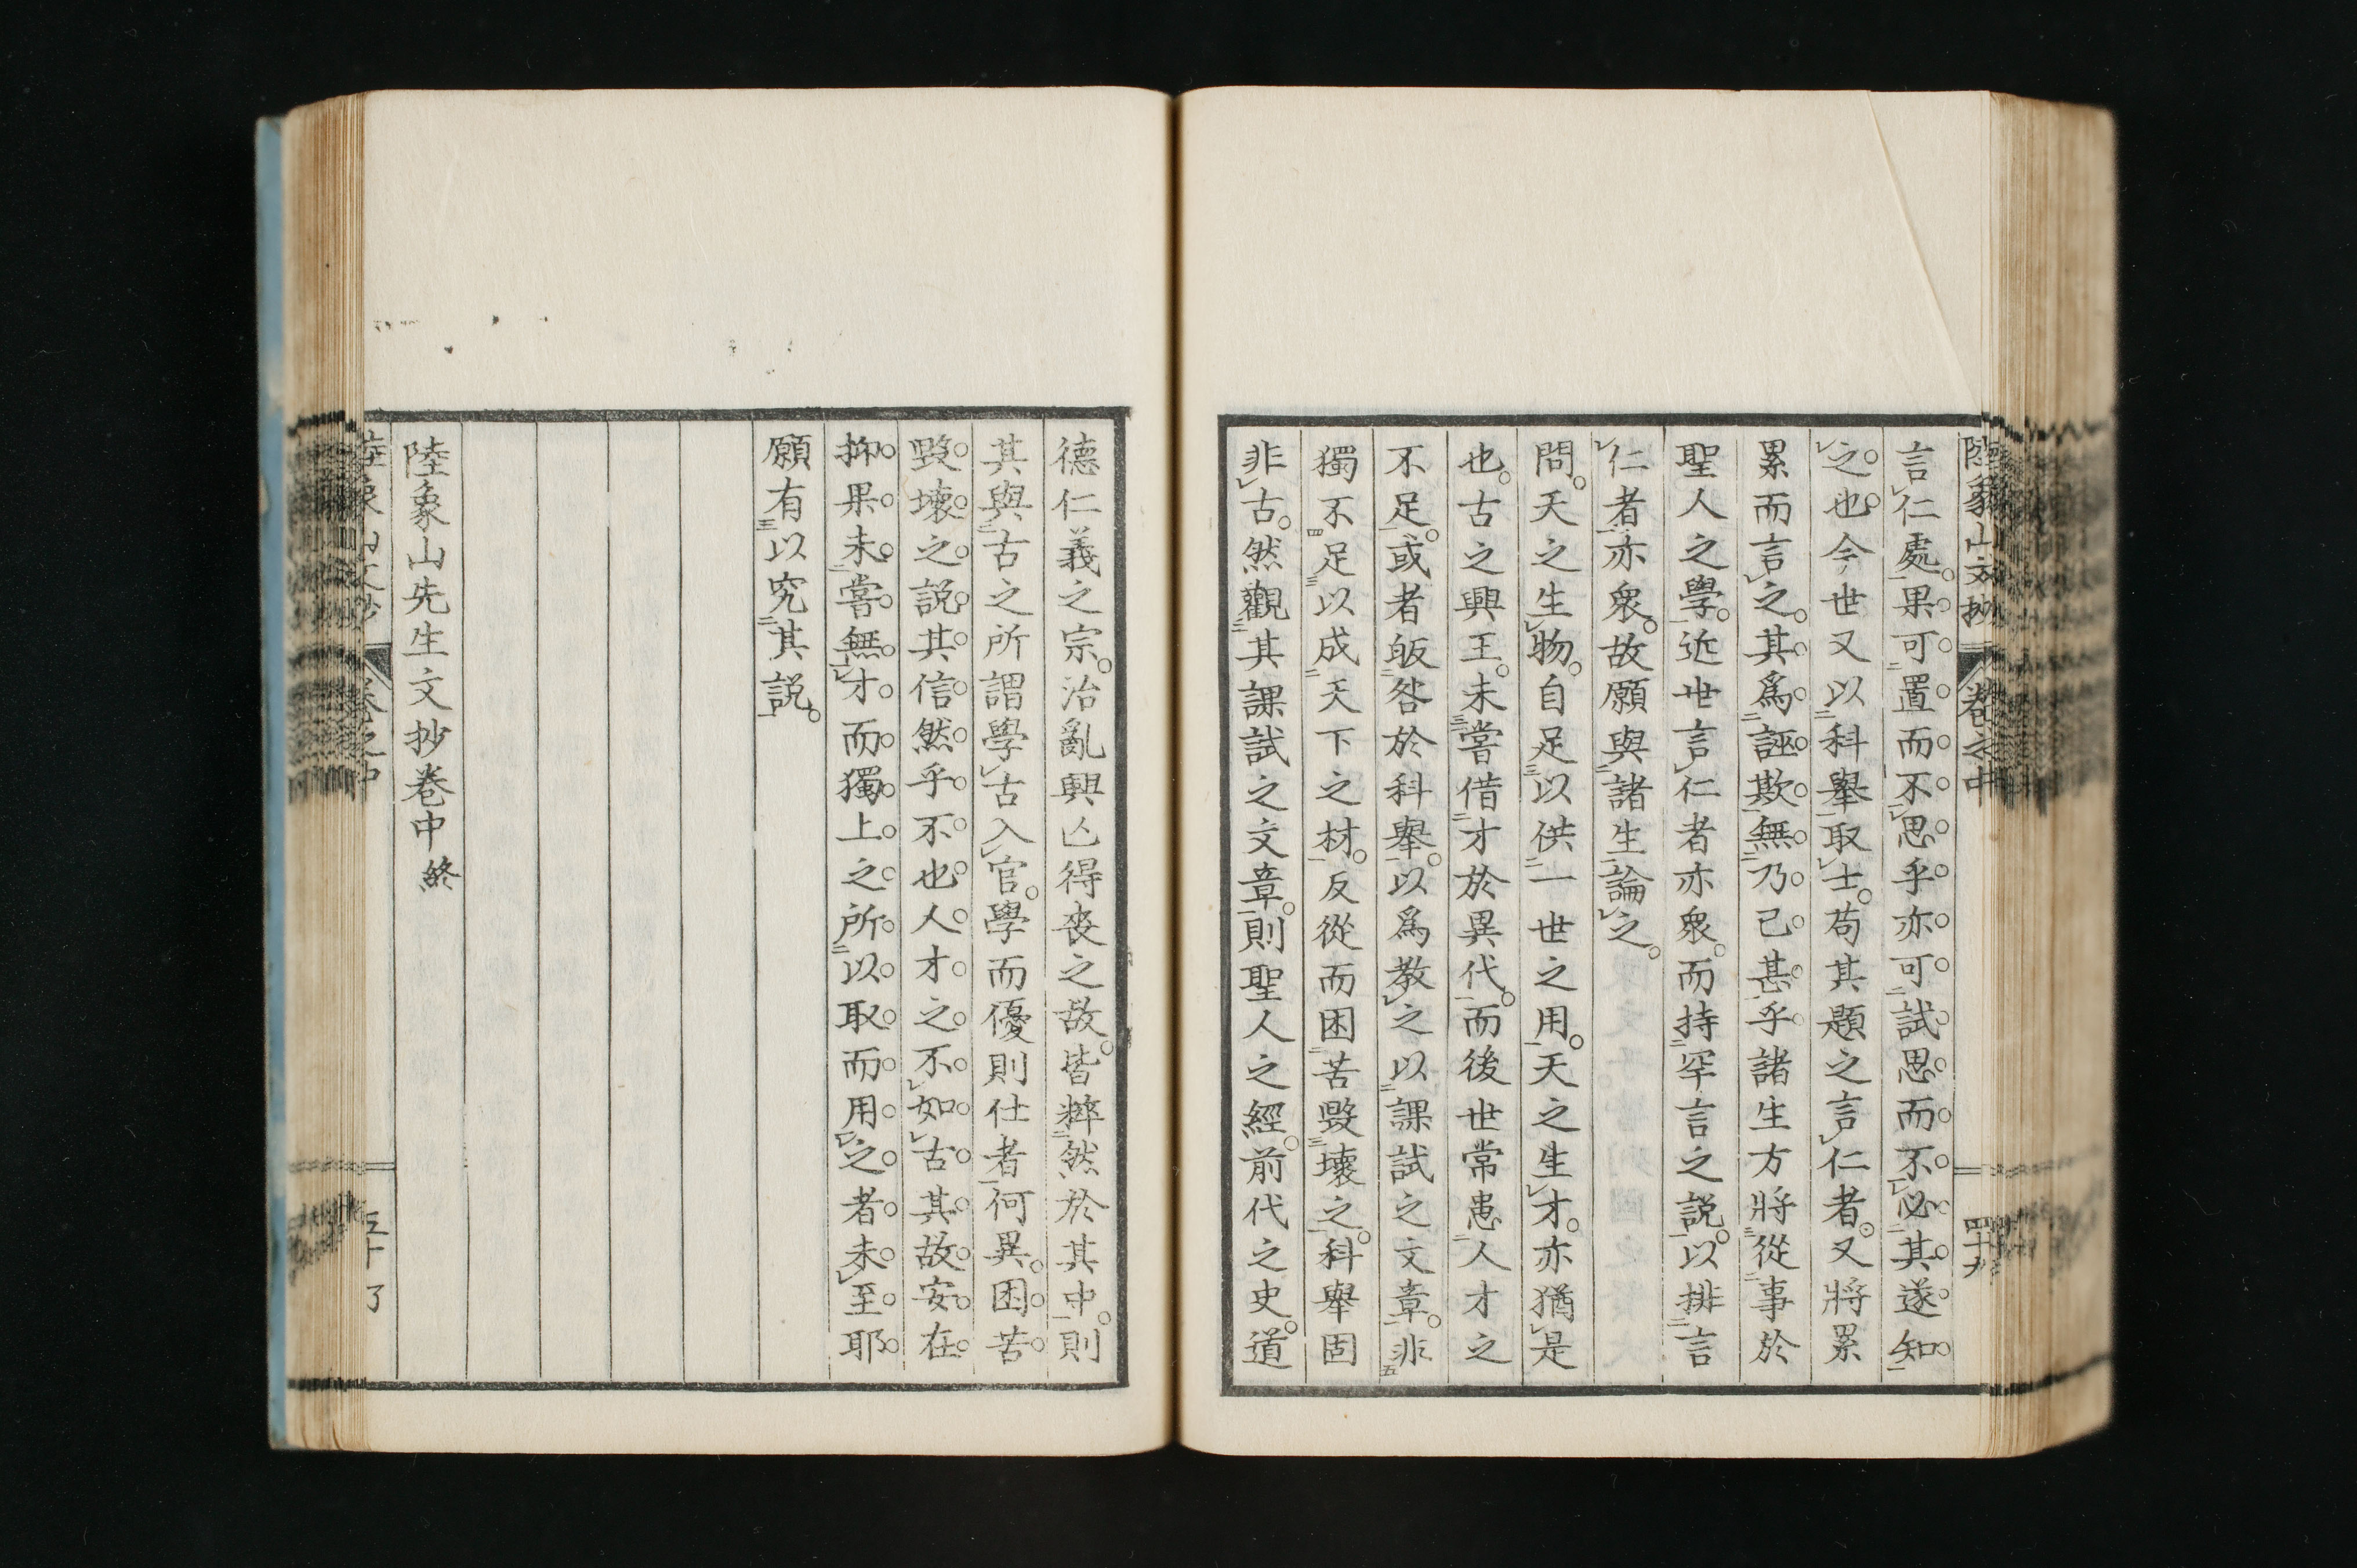 陸象山文抄 卷之中 四十九
言仁處。果可置而不思乎亦可試思而不必其遂知
之也今世又以科舉取士。苟其題之言仁者。又將累
累而言之。其爲誣欺無乃已甚乎諸生方將從事於
聖人之學。近世言仁者亦衆。而持罕言之説。以排言
仁者亦衆。故願與諸生論之。
問。天之生物。自足以供一世之用。天之生才。亦猶是
也。古之興王。未嘗借才於異代。而後世常患人才之
不足。或者皈咎於科舉。以爲教之以課試之文章。非
獨不足以成天下之材。反從而困苦毀壞之。科舉固
非古。然觀其課試之文章。則聖人之經。前代之史。道
德仁義之宗。治亂興亾得喪之故。皆粹然於其中。則
其與古之所謂學古入官。學而優則仕者何異。困苦
毀壞之説其信然乎不也人才之不如古其故安在
抑果未嘗無才而獨上之所以取而用之者未至耶
願有以究其説。
陸象山先生文抄卷中終